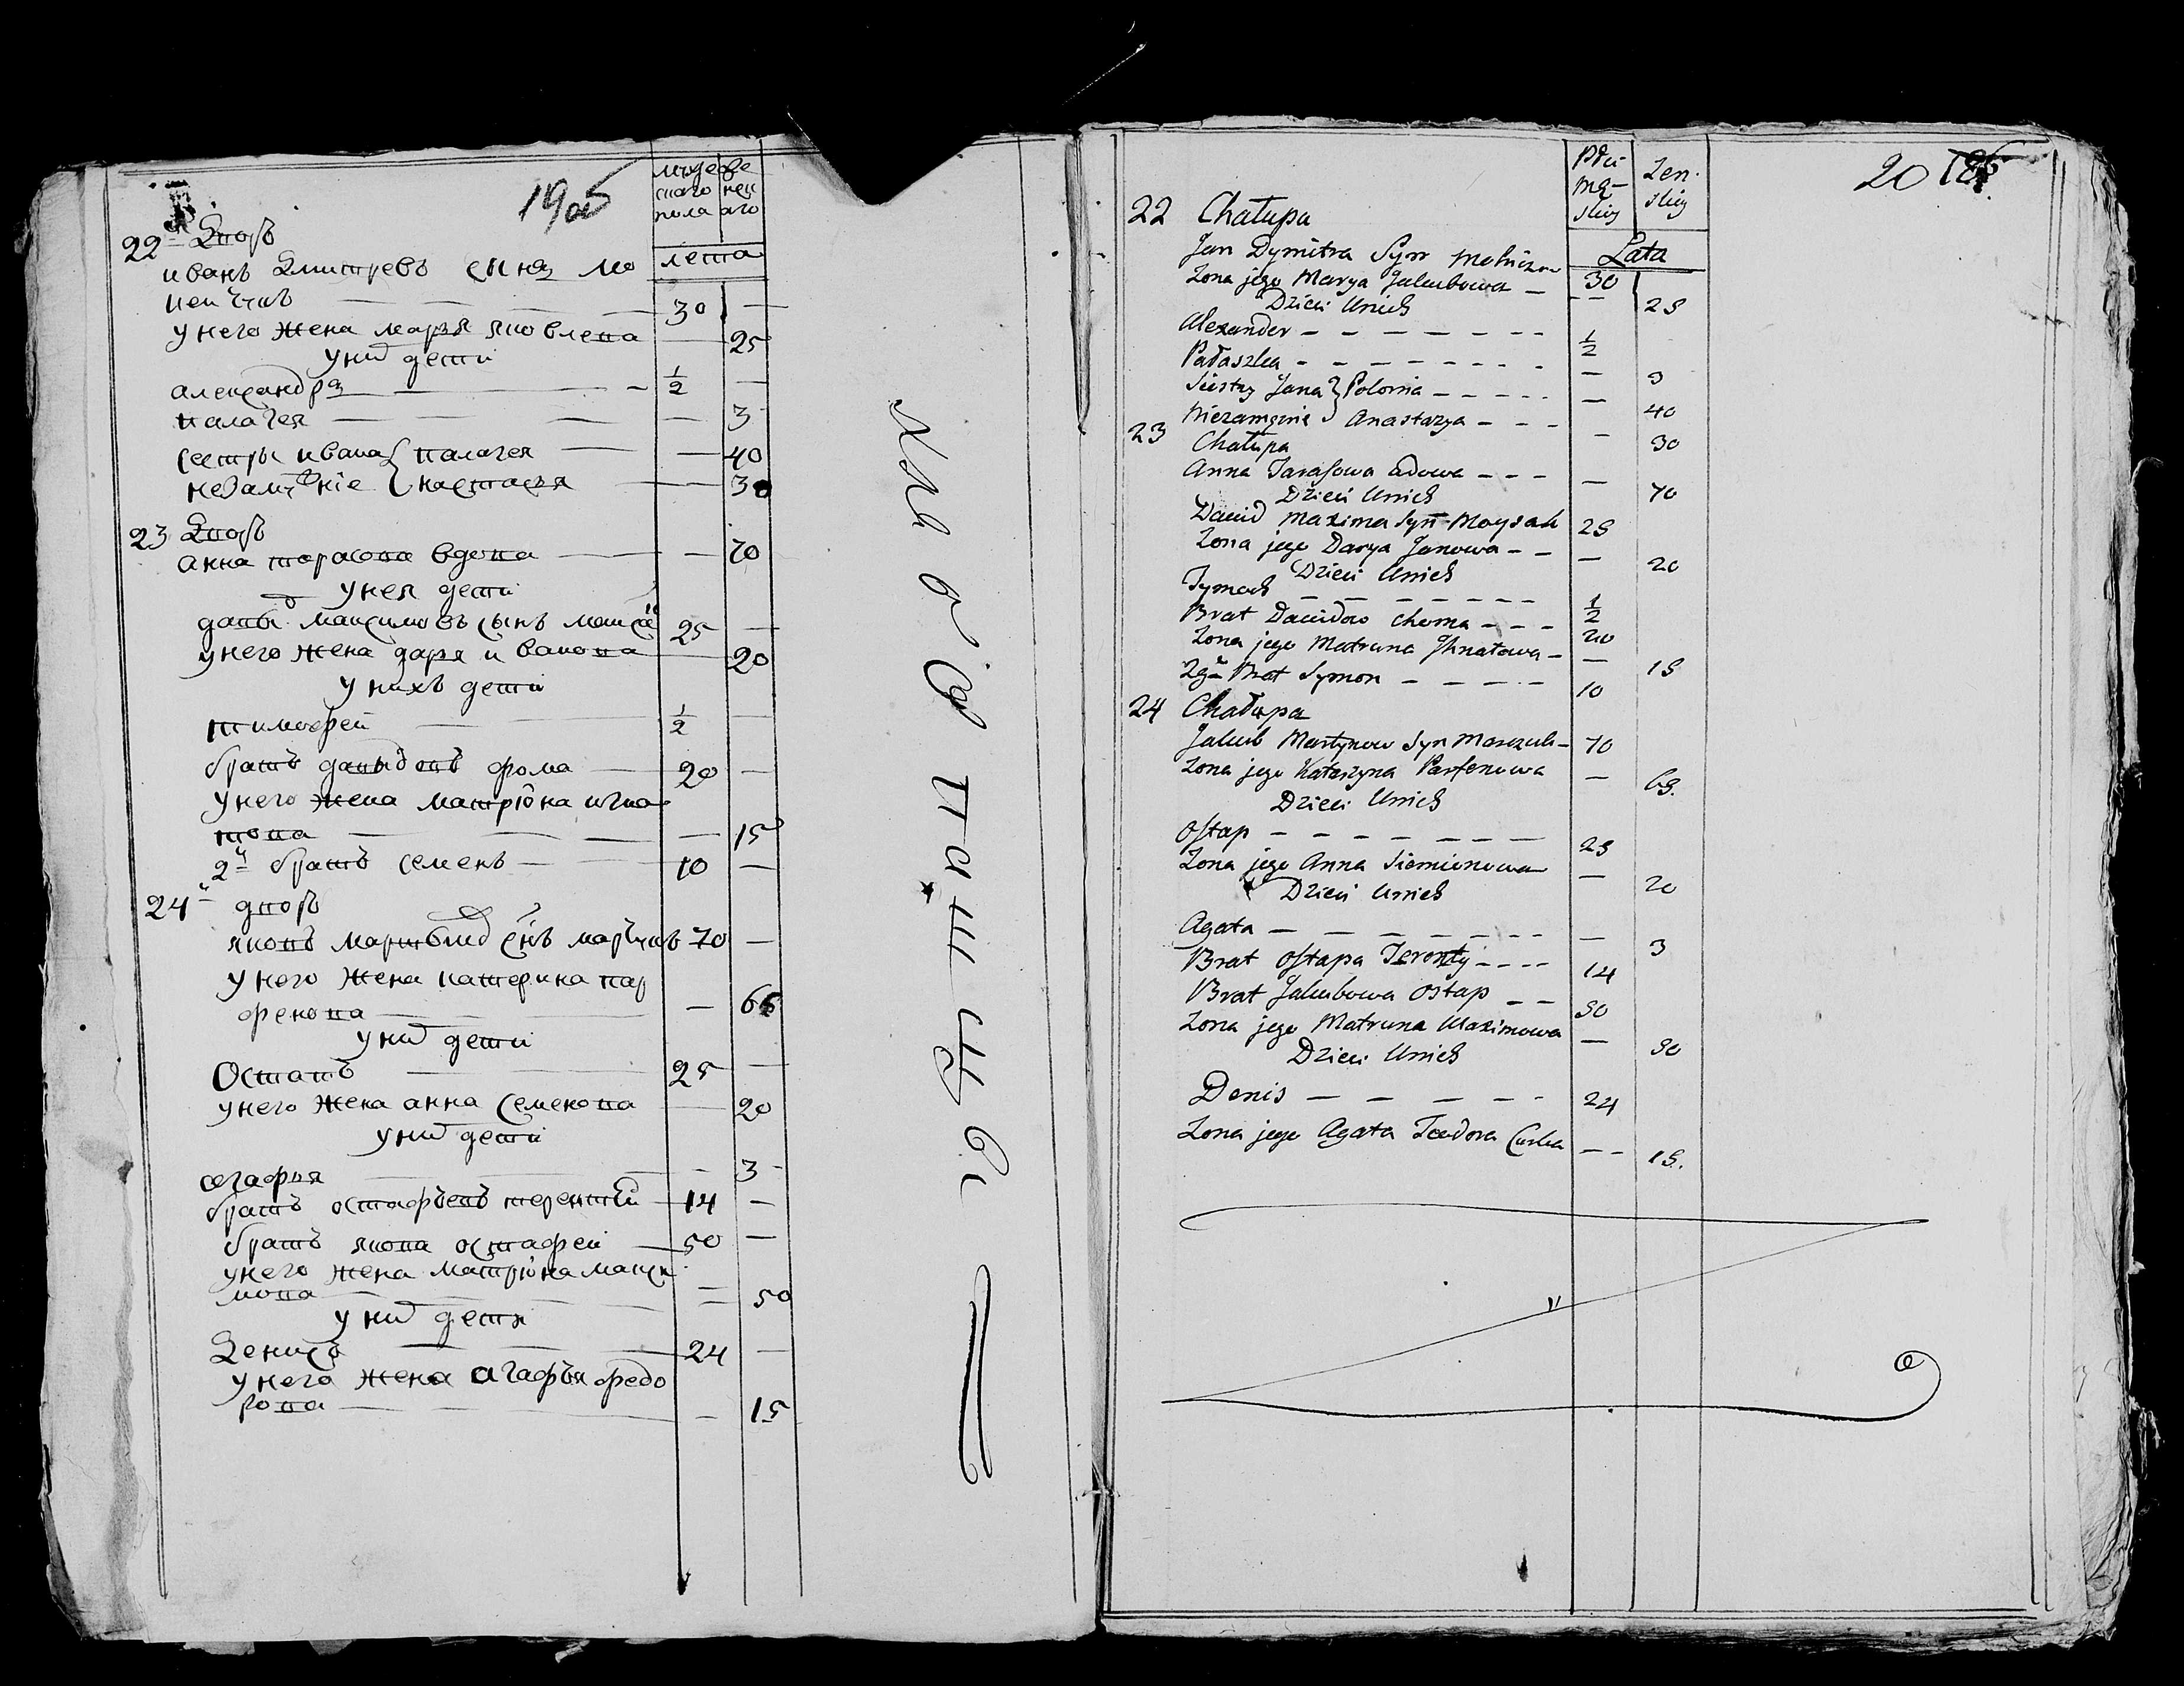 19об
мужескаго пола
женскаго
лета
22й Дворъ
иванъ Дмитревъ сынъ мо
нейчик — 30 —
у него жена маря яковлева — 25
у них дети
александръ — ½ —
палагея — 3
сестры ивана палагея — 40
незамужніе настася — 30
23 Дворъ
анна тарасова вдова — 70
у нея дети
давыд максимовъ сынъ 25 —
у него жена даря иванова — 20
у нихъ дети
тимофей — ½ —
братъ давыдовъ фома — 20 —
у него жена матрiона игна
това — 15
2й братъ семенъ — 10 —
24й дворъ
яковъ снъ 70 —
у него жена катерина пар
фенова — 65
у них дети
Остапъ — 25 —
у него жена анна семенова — 20
у них дети
агафия — 3
братъ остафьевъ терентий — 14 —
братъ якова остафей — 50 —
у него жена матрiона макси
мова — 50
у них дети
Денисъ — 24 —
у него жена агафья федо
рова — 15
20
Płci męskiey
Żeńskiey
Lata
22 Chałupa
Jan Dymitra Syn 30
Żona jego Marya Jakubowa — 25
Dzieci Unich
Alexander — ½
Pałaszka — 3
Siestry Jana } Polonia — 40
Niezamęźnie } Anastazya — 30
23 Chałupa
Anna Tarasowa wdowa — 70
Dzieci Unich
Dawid Maxima Syn Moysak 25
Żona jego Darya Janowa — 20
Dzieci Unich
Tymoch — ½
Brat Dawidow Choma — 20
Żona jego Matruna Ihnatowa — 15
2gi Brat Symon — 10
24 Chałupa
Jakub Martynow Syn Marczuk — 70
Żona jego Katarzyna Parfenowa — 65.
Dzieci Unich
Ostap — 25
Żona jego Anna Siemionowa — 20
Dzieci Unich
Agata — 3
Brat Ostapa Teronty — 14
Brat Jakubowa Ostap — 50
Żona jego Matruna Maximowa — 50
Dzieci Unich
Denis — 24
Żona jego Agata Teodora Curka — 15.